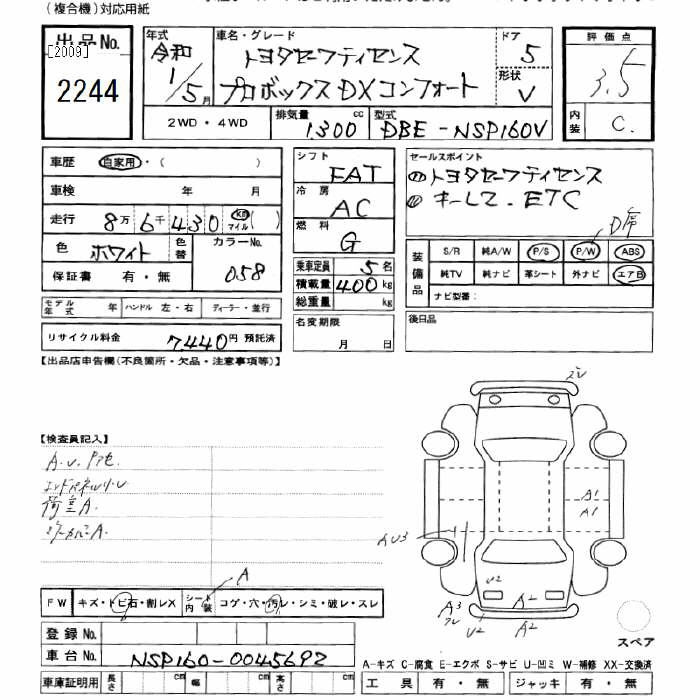 (複合機)対応用紙
出品No. [2009]
2244
年式 令和 1/5月
車名・グレード トヨタセーフティセンス
プロボックスDXコンフォート
ドア 5
形状 V
2WD・4WD
排気量 1300 cc
型式 DBE-NSP160V
評価点 3.5
内装 C.
車歴 自家用・( )
車検 年 月
走行 8万6千430 km マイル( )
色 ホワイト 色替 カラーNo. 058
保証書 有・無
モデル年式 年 ハンドル 左・右 ディーラー・並行
リサイクル料金 7440円 預託済
シフト FAT
冷房 AC
燃料 G
乗車定員 5名
積載量 400kg
総重量 kg
名変期限 月 日
セールスポイント
トヨタセーフティセンス
キーレス. ETC
D席
装備品 S/R 純A/W P/S P/W ABS
純TV 純ナビ 革シート 外ナビ エアB
ナビ型番:
後日品
【出品店申告欄(不良箇所・欠品・注意事項等)】
【検査員記入】
A.U.
荷室A.
A
FW キズ・トビ石・割レX シート内装 コゲ・穴・汚レ・シミ・破レ・スレ
登録No.
車台No. NSP160-0045692
車庫証明用 長さ cm 幅 cm 高さ cm
A1
A1
AU3
U2
A2
A3
U2
A2
スペア
A-キズ C-腐食 E-エクボ S-サビ U-凹ミ W-補修 XX-交換済
工具 有・無 ジャッキ 有・無